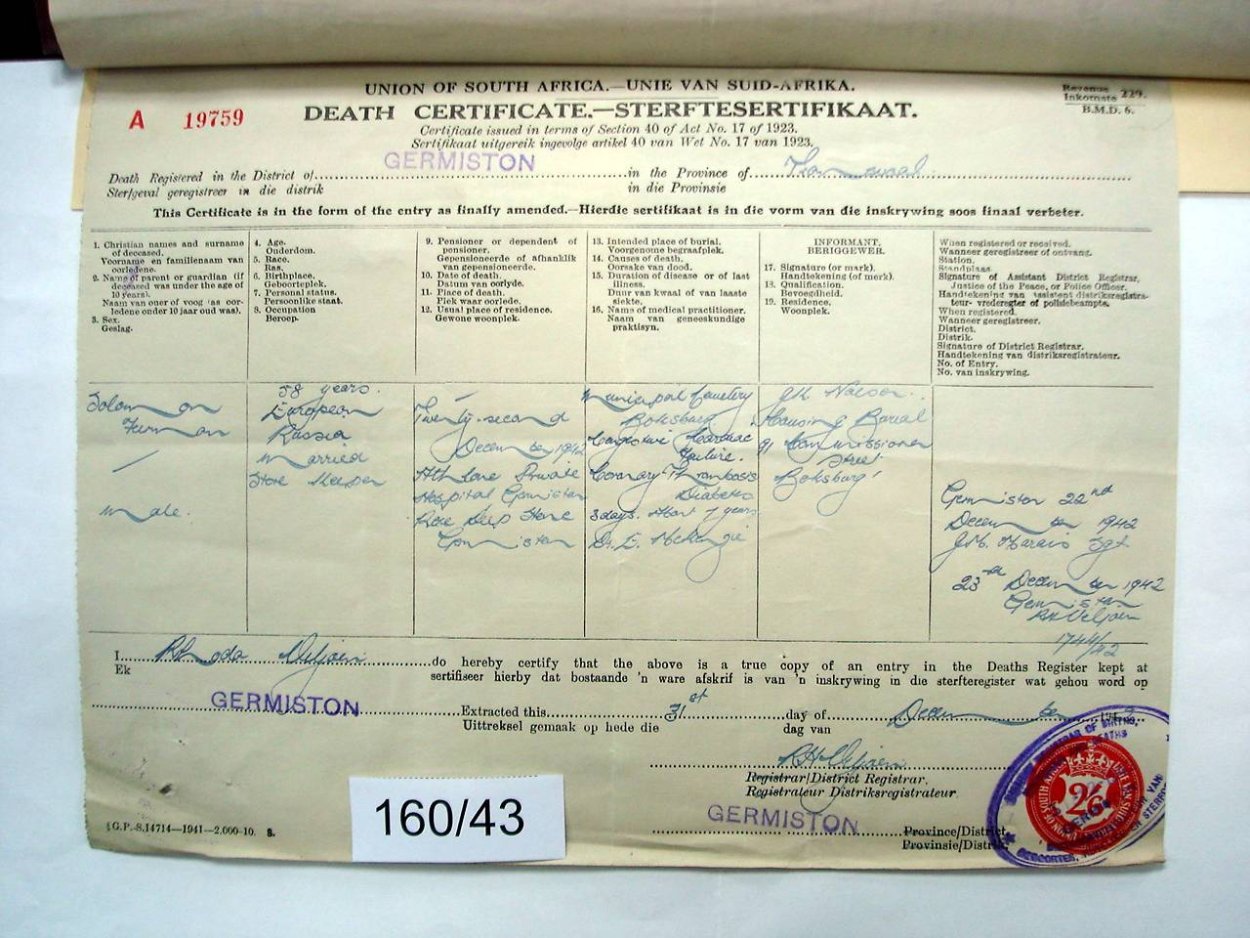 UNION OF SOUTH AFRICA.—UNIE VAN SUID-AFRIKA.
Revenue
Inkomste 229.
B.M.D. 6.
A 19759
DEATH CERTIFICATE.—STERFTESERTIFIKAAT.
Certificate issued in terms of Section 40 of Act No. 17 of 1923.
Sertifikaat uitgereik ingevolge artikel 40 van Wet No. 17 van 1923.
Death Registered in the District of GERMISTON in the Province of Transvaal
Sterfgeval geregistreer in die distrik in die Provinsie
This Certificate is in the form of the entry as finally amended.—Hierdie sertifikaat is in die vorm van die inskrywing soos finaal verbeter.
1. Christian names and surname
of deceased.
Voorname en familienaam van
oorledene.
2. Name of parent or guardian (if
deceased was under the age of
10 years).
Naam van ouer of voog (as oor-
ledene onder 10 jaar oud was).
3. Sex.
Geslag.
4. Age.
Ouderdom.
5. Race.
Ras.
6. Birthplace.
Geboorteplek.
7. Personal status.
Persoonlike staat.
8. Occupation
Beroep.
9. Pensioner or dependent of
pensioner.
Gepensioneerde of afhanklik
van gepensioneerde.
10. Date of death.
Datum van oorlyde.
11. Place of death.
Plek waar oorlede.
12. Usual place of residence.
Gewone woonplek.
13. Intended place of burial.
Voorgenome begraafplek.
14. Causes of death.
Oorsake van dood.
15. Duration of disease or of last
illness.
Duur van kwaal of van laaste
siekte.
16. Name of medical practitioner.
Naam van geneeskundige
praktisyn.
INFORMANT.
BERIGGEWER.
17. Signature (or mark).
Handtekening (of merk).
18. Qualification.
Bevoegdheid.
19. Residence.
Woonplek.
When registered or received.
Wanneer geregistreer of ontvang.
Station.
Standplaas.
Signature of Assistant District Registrar,
Justice of the Peace, or Police Officer.
Handtekening van assistent distriksregistra-
teur, vrederegter of polisiebeampte.
When registered.
Wanneer geregistreer.
District.
Distrik.
Signature of District Registrar.
Handtekening van distriksregistrateur.
No. of Entry.
No. van inskrywing.
Solomon
Furman
/
Male.
58 years.
European
Russia
Married
Store Keeper
—
Twenty-second
December 1942
Athlone Private
Hospital Germiston
Rose Deep Store
Germiston
Municipal Cemetery
Boksburg
Congestive Cardiac
Failure.
Coronary Thrombosis
Diabetes
3 days. About 7 years
Dr. E. McKenzie
Causing Burial
91 Commissioner
Street
Boksburg
Germiston 22nd
December 1942
J.M. Marais Sgt
23rd December 1942
Germiston
RH Viljoen
1744/42
I Rhoda Viljoen do hereby certify that the above is a true copy of an entry in the Deaths Register kept at
Ek sertifiseer hierby dat bostaande 'n ware afskrif is van 'n inskrywing in die sterfteregister wat gehou word op
GERMISTON Extracted this 31st day of December
Uittreksel gemaak op hede die dag van
RH Viljoen
Registrar/District Registrar.
Registrateur Distriksregistrateur.
GERMISTON Province/District
Provinsie/Distrik
G.P.-S.14714—1941—2,000-10. S.
160/43
2/6